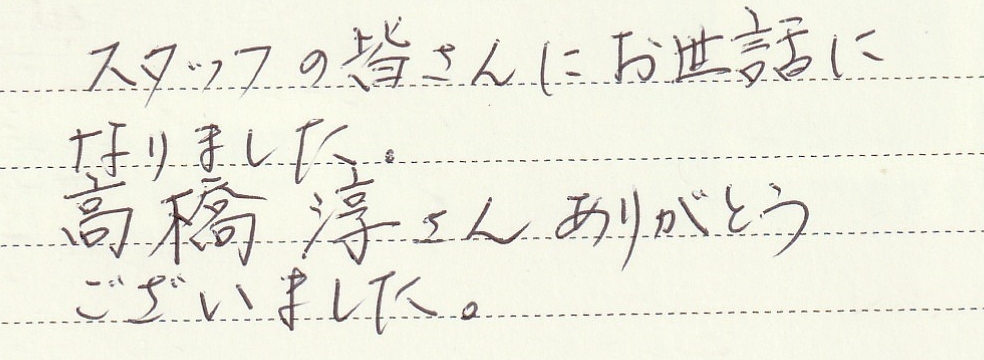 スタッフの皆さんにお世話に
なりました。
高橋 淳さん ありがとう
ございました。